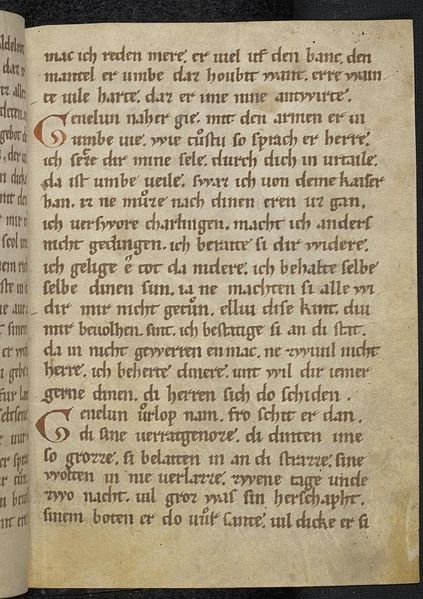 mac ich reden mere. er viel uf den banc. den
mantel er umbe daz houbit want. erre wain
te vile harte. daz er ime nine antwirte.
Genelun naher gie. mit den armen er in
umbe vie. wie tůstu so sprach er herre.
ich sezze dir mine sele. durch dich in urtaile.
da ist umbe veile. swaz ich von deme kaiser
han. iz ne můze nach dinen eren ur gan.
ich verswore charlingen. macht ich anders
nicht gedingen. ich beraite si dir widere.
ich gelige e tot da nidere. ich behalte selbe
selbe dinen sun. ia ne machten si alle wi
dir mir nicht getůn. elliu dise kint. diu
mir bevolhen sint. ich bestatige si an di stat.
da in nicht gewerren en mac. ne zwiuil nicht
herre. ich beherte dinere. unt wil dir iemer
gerne dinen. di herren sich do schiden.
Genelun ůrlop nam. fro schit er dan.
di sine verratgenoze. di duhten ime
so grozze. si belaiten in an di strazze. sine
wolten in nie verlazze. zwene tage unde
zwo nacht. vil groz was sin herschapht.
sinem boten er do vůr sante. vil dicke er si